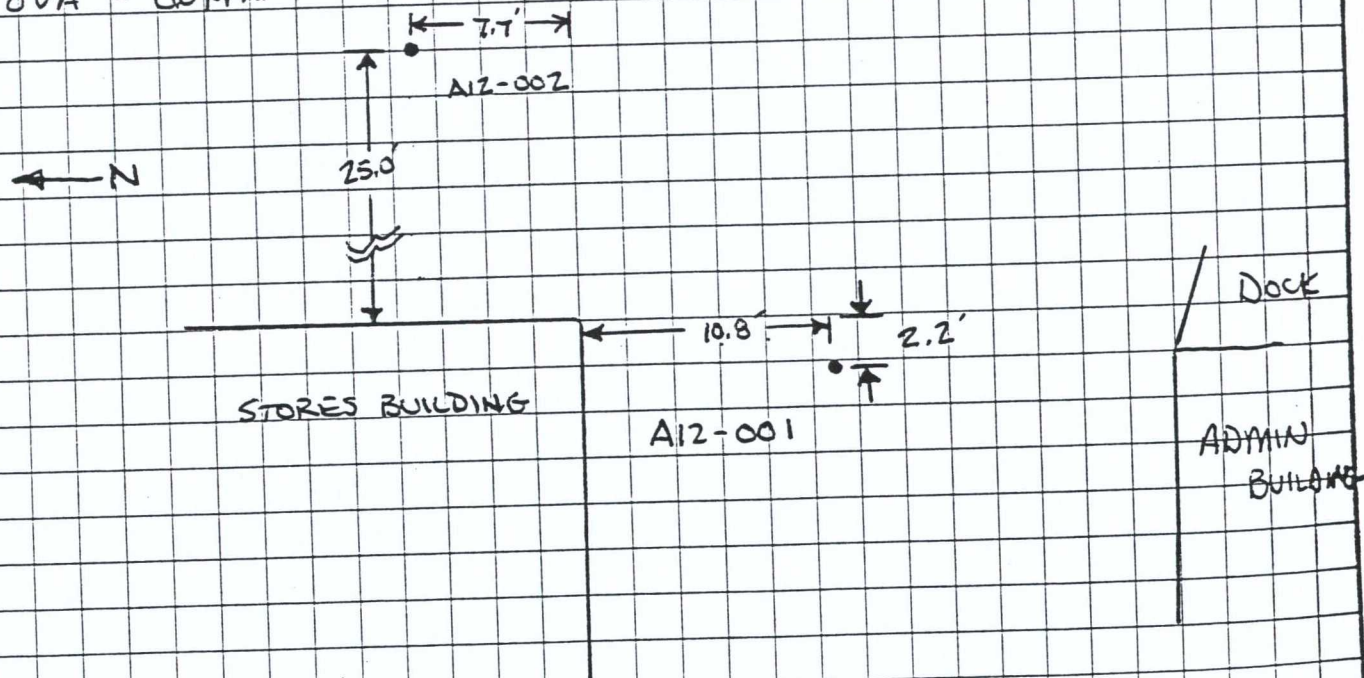 7.7'
A12-002
N
25.0'
DOCK
10.8'
2.2'
STORES BUILDING
A12-001
ADMIN
BUILDING